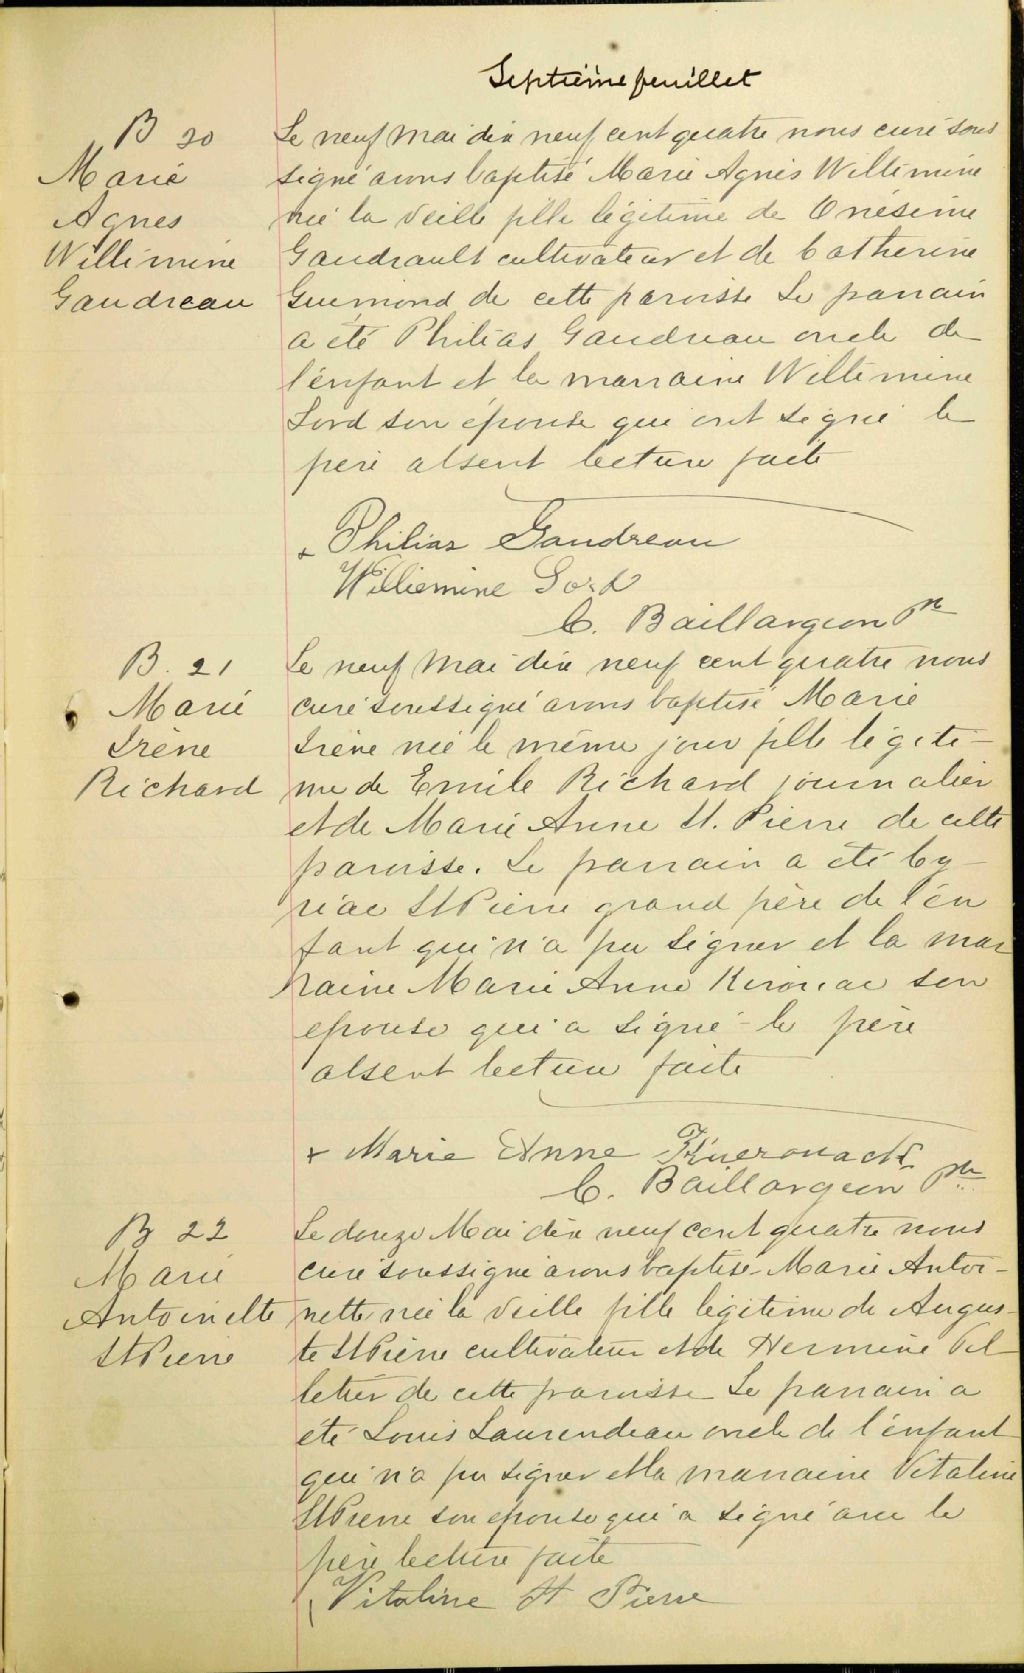 Septième feuillet
B 20
Marie
Agnes
Willimine
Gaudreau
Le neuf mai dix neuf cent quatre nous curé sous
signé avons baptisé Marie Agnès Willimine
née la veille fille légitime de Onésime
Gaudrault cultivateur et de Catherine
Guimond de cette paroisse Le parrain
a été Philias Gaudreau oncle de
l'enfant et la marraine Willimine
Lord son épouse qui ont signé le
père absent lecture faite
+ Philias Gaudreau
Williemine Lord
C. Baillargeon Ptre
B. 21
Marie
Irène
Richard
Le neuf Mai dix neuf cent quatre nous
curé soussigné avons baptisé Marie
Irène née le même jour fille légiti-
me de Emile Richard journalier
et de Marie Anne St. Pierre de cette
paroisse. Le parrain a été Cy-
riac St Pierre grand père de l'en
fant qui n'a pu signer et la mar
raine Marie Anne Kirouac son
épouse qui a signé - le père
absent lecture faite
+ Marie Anne Kuerouack
C. Baillargeon Ptre
B 22
Marie
Antoinette
St Pierre
Le douze Mai dix neuf cent quatre nous
curé soussigné avons baptisé Marie Antoi-
nette née la veille fille légitime de Augus-
te St Pierre cultivateur et de Hermine Pel
letier de cette paroisse Le parrain a
été Louis Laurendeau oncle de l'enfant
qui n'a pu signer et la marraine Vitaline
St Pierre son épouse qui a signé avec le
père lecture faite
Vitaline St Pierre